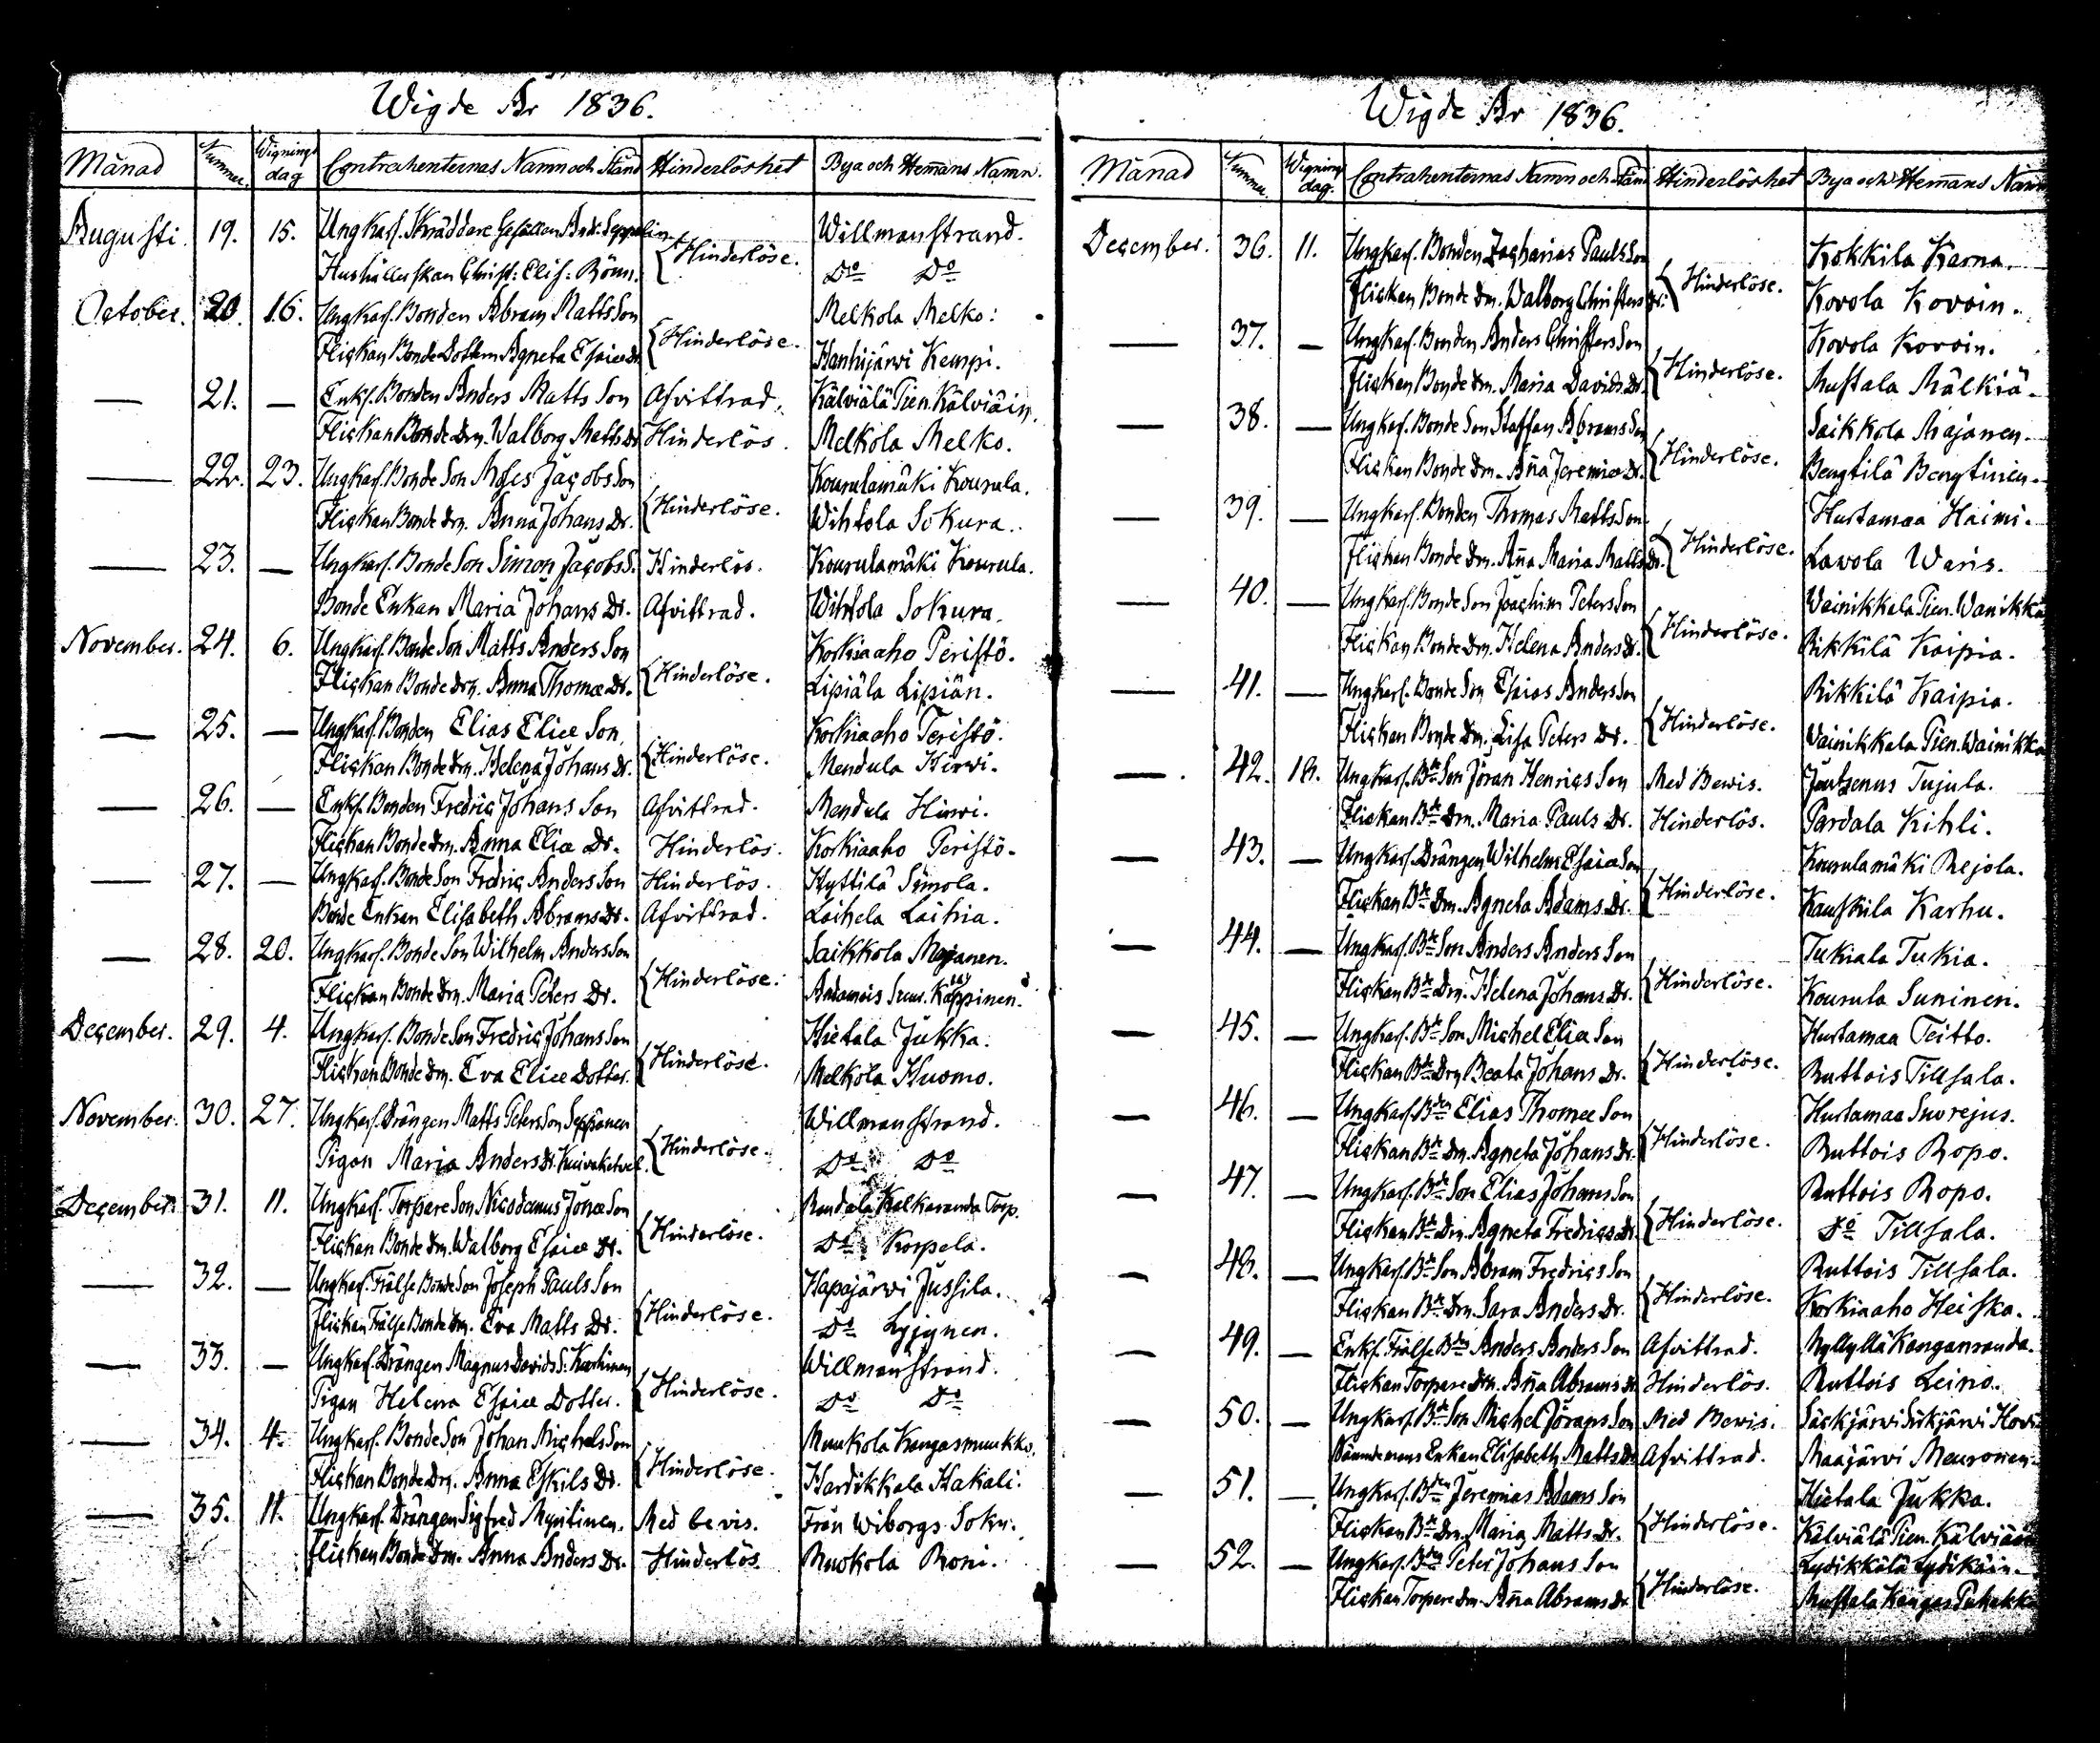 Wigde År 1836.
Månad Nummer. Wignings dag Contrahenternas Namn och Stånd Hinderlöshet Bya och Hemans Namn.
Augusti. 19. 15. Ungkarl. Skräddare Gesällen Andr. Seppelin Hinderlöse. Willmanstrand.
Hushållerskan Christ: Elis: Rönn. Do Do
October. 20. 16. Ungkarl. Bonden Abram Matts Son Hinderlöse. Melkola Melko:
Flickan Bonde Dottern Agneta Esaiæ Dr Hanhijärwi Kemppi.
— 21. — Enkl. Bonden Anders Matts Son Afvittrad. Kälviälä Pien. Kälviäin.
Flickan Bonde Drn. Walborg Matts Dr Hinderlös. Melkola Melko.
— 22. 23. Ungkarl. Bonde Son Moses Jacobs Son Hinderlöse. Kourulamäki Kourula.
Flickan Bonde drn. Anna Johans Dr. Wihtola Sokura.
— 23. — Ungkarl. Bonde Son Simon Jacobs S. Hinderlös. Kourulamäki Kourula.
Bonde Enkan Maria Johans Dr. Afvittrad. Wihtola Sokura.
November. 24. 6. Ungkarl. Bonde Son Matts Anders Son Hinderlöse. Korkiaaho Peristö.
Flickan Bonde drn. Anna Thomæ Dr. Lipiäla Lipiän.
— 25. — Ungkarl. Bonden Elias Eliæ Son. Hinderlöse. Korkiaaho Peristö.
Flickan Bonde drn. Helena Johans Dr. Mendula Hirvi.
— 26. — Enkl. Bonden Fredric Johans Son Afvittrad. Mendula Hirwi.
Flickan Bonde drn. Anna Eliæ Dr. Hinderlös. Korkiaaho Peristö.
— 27. — Ungkarl. Bonde Son Fredric Anders Son Hinderlös. Hyttilä Simola.
Bonde Enkan Elisabeth Abrams Dr. Afvittrad. Laihela Laihia.
— 28. 20. Ungkarl. Bonde Son Wilhelm Anders Son Hinderlöse. Saikkola Majanen.
Flickan Bonde Drn. Maria Peters Dr. Suur.
December. 29. 4. Ungkarl. Bonde Son Fredric Johans Son Hinderlöse. Hietala Jukka.
Flickan Bonde Drn. Eva Eliæ Dotter. Melkola Huomo.
November. 30. 27. Ungkarl. Drängen Matts Peters Son Seppänen Hinderlöse. Willmanstrand.
Pigan Maria Anders Dr. Do Do
December. 31. 11. Ungkarl. Torpare Son Nicodemus Jonæ Son Hinderlöse. Torp.
Flickan Bonde Drn. Walborg Esaiæ Dr. Do Korpela.
— 32. — Ungkarl. Frälse Bonde Son Joseph Pauls Son Hinderlöse. Hapajärwi Jussila.
Flickan Frälse Bonde Drn. Eva Matts Dr. Do Lyjynen.
— 33. — Ungkarl. Drängen Magnus Davids S. Hinderlöse. Willmanstrand.
Pigan Helena Esaiæ Dotter. Do Do
— 34. 4. Ungkarl. Bonde Son Johan Michels Son Hinderlöse. Muukola Kangasmuukko.
Flickan Bonde Drn. Anna Eskils Dr. Hardikkala Hakali.
— 35. 11. Ungkarl. Drängen Sigfred Myntinen. Med bevis. Från Wiborgs Sokn.
Flickan Bonde Drn. Anna Anders Dr. Hinderlös Ruokola Roni.
Wigde År 1836.
Månad Nummer Wignings dag. Contrahenternas Namn och Stånd Hinderlöshet Bya och Hemans Namn
December. 36. 11. Ungkarl. Bonden Zacharias Pauls Son Hinderlöse. Kokkila Karna.
Flickan Bonde drn. Walborg Christers Dr. Kovola Kovoin.
— 37. — Ungkarl. Bonden Anders Christers Son Hinderlöse. Kovola Kovoin.
Flickan Bonde drn. Maria Davids Dr. Mustala Mälkiä.
— 38. — Ungkarl. Bonde Son Staffan Abrams Son Hinderlöse. Saikkola Majanen.
Flickan Bonde drn. Aña Jeremiæ Dr. Bengtilä Bengtinen.
— 39. — Ungkarl. Bonden Thomas Matts Son Hinderlöse. Hurtamaa Haimi.
Flickan Bonde drn. Aña Maria Matts Dr. Lavola Waris.
— 40. — Ungkarl. Bonde Son Joachim Peters Son Hinderlöse. Wainikkala Pien. Wanikka
Flickan Bonde drn. Helena Anders Dr. Rikkilä Kaipia.
— 41. — Ungkarl. Bonde Son Esaias Anders Son Hinderlöse. Rikkilä Kaipia.
Flickan Bonde Drn. Lisa Peters Dr. Wainikkala Pien. Wainikka
— 42. 18. Ungkarl. Bde Son Jöran Henrics Son Med Bewis. Joutzenus Tujula.
Flickan Bde Drn. Maria Pauls Dr. Hinderlös. Pardala Kihli.
— 43. — Ungkarl. Drängen Wilhelm Esaiæ Son Hinderlöse. Kourulamäki Rejola.
Flickan Bde Drn. Agneta Adams Dr. Kauskila Karhu.
— 44. — Ungkarl. Bde Son Anders Anders Son Hinderlöse. Tukiala Tukia.
Flickan Bde Drn. Helena Johans Dr. Kourula Suninen.
— 45. — Ungkarl. Bde Son Michel Eliæ Son Hinderlöse. Hurtamaa Teitto.
Flickan Bde Drn Beata Johans Dr. Ruttois Tillsala.
— 46. — Ungkarl. Bden Elias Thomæ Son Hinderlöse. Hurtamaa Suorejus.
Flickan Bde Drn. Agneta Johans Dr. Ruttois Ropo.
— 47. — Ungkarl. Bde Son Elias Johans Son Hinderlöse. Ruttois Ropo.
Flickan Bde Drn. Agneta Fredrics Dr. Do Tillsala.
— 48. — Ungkarl. Bde Son Abram Fredrics Son Hinderlöse. Ruttois Tillsala.
Flickan Bde Drn. Sara Anders Dr. Korkiaaho Heiska.
— 49. — Enkl. Frälse Bden Anders Anders Son Afvittrad. Myllyllä Kanganranda.
Flickan Torpare Drn. Aña Abrams Dr. Hinderlös. Ruttois Leino.
— 50. — Ungkarl. Bde Son Michel Jörans Son Med Bewis. Säckjärwi
Enkan Elisabeth Matts Dr Afvittrad. Maajärvi Meuronen.
— 51. — Ungkarl. Bden Jeremias Adams Son Hinderlöse. Hietala Jukka.
Flickan Bde Drn. Maria Matts Dr. Kälviälä Pien. Kälviäin
— 52. — Ungkarl. Bden Peter Johans Son Hinderlöse. Lydikkälä Lydikäin.
Flickan Torpare Drn. Aña Abrams Dr. Mustala Kangas